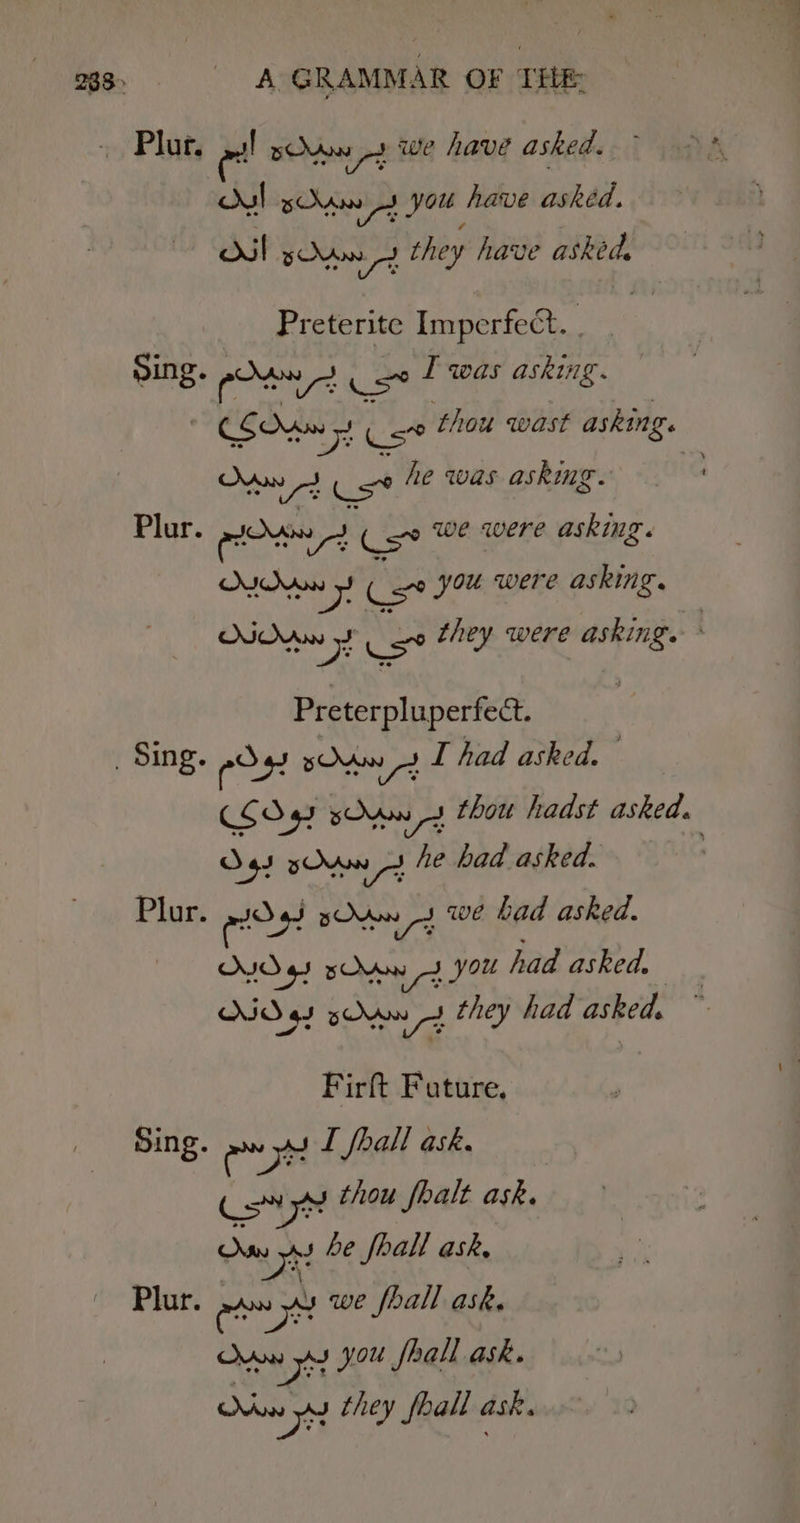 238 A GRAMMAR OF THE
Plur. پرسیده ایم we have asked.
پرسیده اید you have asked.
پرسیده اند they have asked.
Preterite Imperfect.
Sing. می پرسیدم I was asking.
می پرسیدی thou wast asking.
می پرسید he was asking.
Plur. می پرسیدیم we were asking.
می پرسیدید you were asking.
می پرسیدند they were asking.
Preterpluperfect.
Sing. پرسیده بودم I had asked.
پرسیده بودی thou hadst asked.
پرسیده بود he had asked.
Plur. پرسیده بودیم we had asked.
پرسیده بودید you had asked.
پرسیده بودند they had asked.
Firſt Future.
Sing. بپرسم I ſhall ask.
بپرسی thou ſhalt ask.
بپرسد he ſhall ask.
Plur. بپرسیم we ſhall ask.
بپرسید you ſhall ask.
بپرسند they ſhall ask.